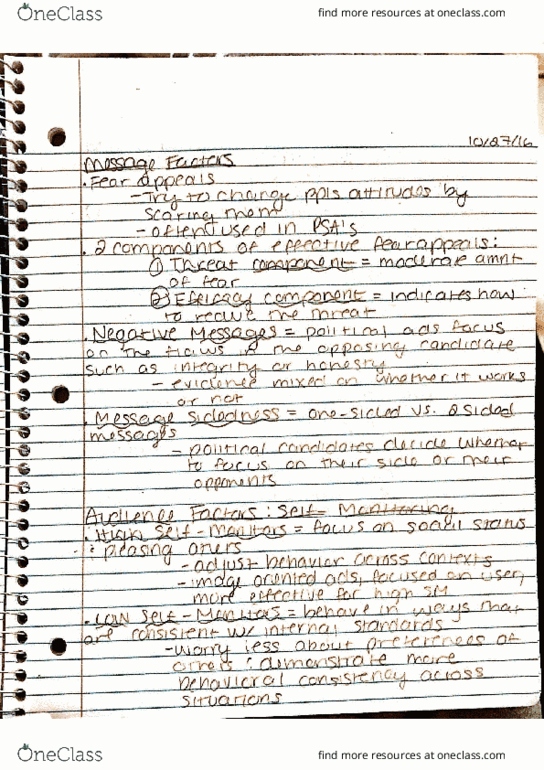 OneClass
find more resources at oneclass.com
10/27/16
Message Factors
. Fear appeals
- Try to change ppls attitudes by
scaring them
- often used in PSA's
. 2 components of effective fear appeals:
① Threat component = moderate amnt
of fear
② Efficacy component = indicates how
to reduce the threat
. Negative Messages = political ads focus
on the flaws in the opposing candidate
such as integrity or honesty
- evidence mixed on whether it works
or not
. Message sidedness = one-sided vs. 2 sided
messages
- political candidates decide whether
to focus on their side or their
opponents
Audience Factors: Self-Monitoring
. High Self-Monitors = focus on social status
& pleasing others
- adjust behavior across contexts
- image oriented ads, focused on user,
more effective for high SM
. Low Self-Monitors = behave in ways that
are consistent w/ internal standards
- worry less about preferences of
others & demonstrate more
behavioral consistency across
situations
OneClass
find more resources at oneclass.com